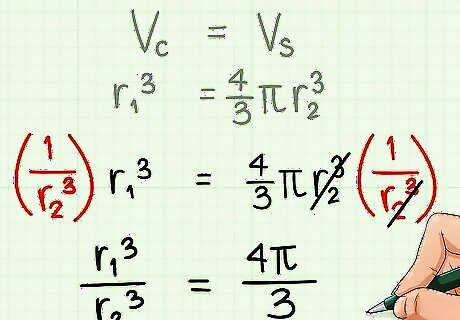 V_c = V_s
r₁³ = 4/3 π r₂³
(1/r₂³) r₁³ = 4/3 π r₂³ (1/r₂³)
r₁³/r₂³ = 4π/3